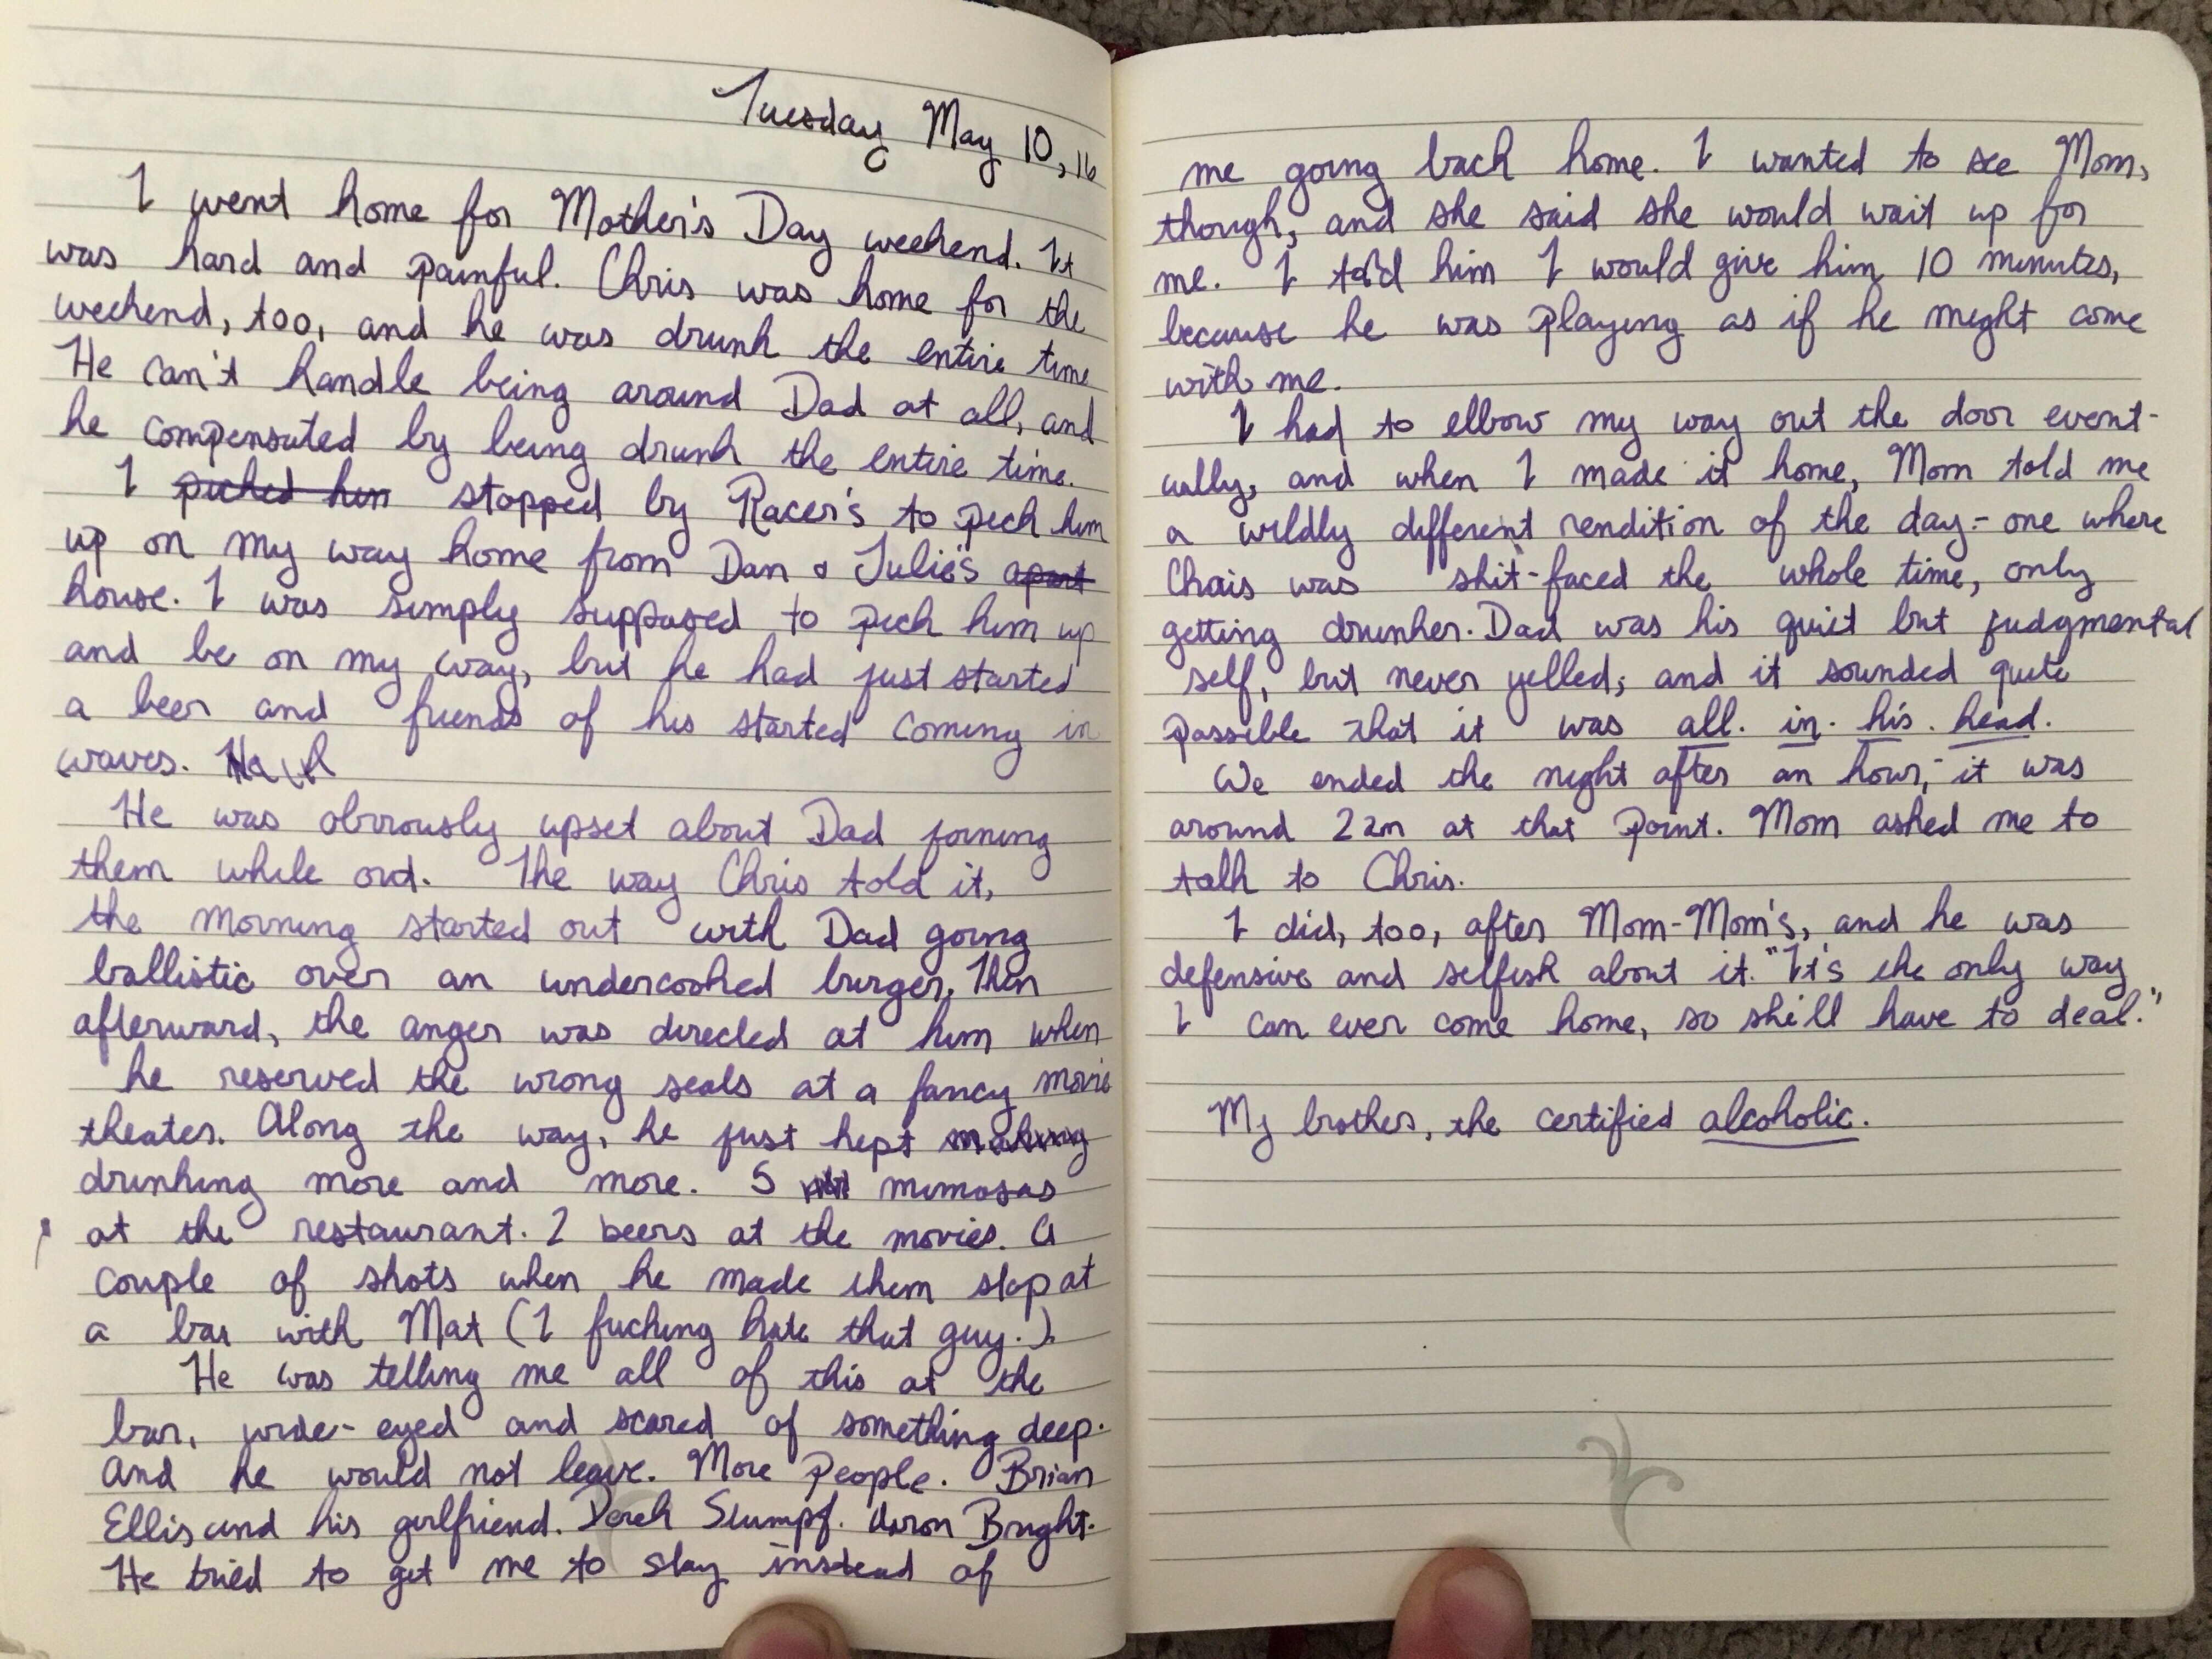 Tuesday May 10, 16
I went home for Mother's Day weekend. It
was hard and painful. Chris was home for the
weekend, too, and he was drunk the entire time
He can't handle being around Dad at all, and
he compensated by being drunk the entire time.
I picked him stopped by Racer's to pick him
up on my way home from Dan & Julie's apart
house. I was simply supposed to pick him up
and be on my way, but he had just started
a beer and friends of his started coming in
waves.
He was obviously upset about Dad joining
them while out. The way Chris told it,
the morning started out with Dad going
ballistic over an undercooked burger. Then
afterward, the anger was directed at him when
he reserved the wrong seats at a fancy movie
theater. Along the way, he just kept making
drinking more and more. 5 mimosas
at the restaurant. 2 beers at the movies. A
couple of shots when he made them stop at
a bar with Mat (I fucking hate that guy.).
He was telling me all of this at the
bar, wide-eyed and scared of something deep.
And he would not leave. More people. Brian
Ellis and his girlfriend. Derek Slumpf. Aaron Bright.
He tried to get me to stay instead of
me going back home. I wanted to see Mom,
though, and she said she would wait up for
me. I told him I would give him 10 minutes,
because he was playing as if he might come
with me.
I had to elbow my way out the door event-
ually, and when I made it home, Mom told me
a wildly different rendition of the day - one where
Chris was shit-faced the whole time, only
getting drunker. Dad was his quiet but judgmental
self, but never yelled; and it sounded quite
possible that it was all. in. his. head.
We ended the night after an hour, - it was
around 2am at that point. Mom asked me to
talk to Chris.
I did, too, after Mom-Mom's, and he was
defensive and selfish about it. "It's the only way
I can ever come home, so she'll have to deal."
My brother, the certified alcoholic.